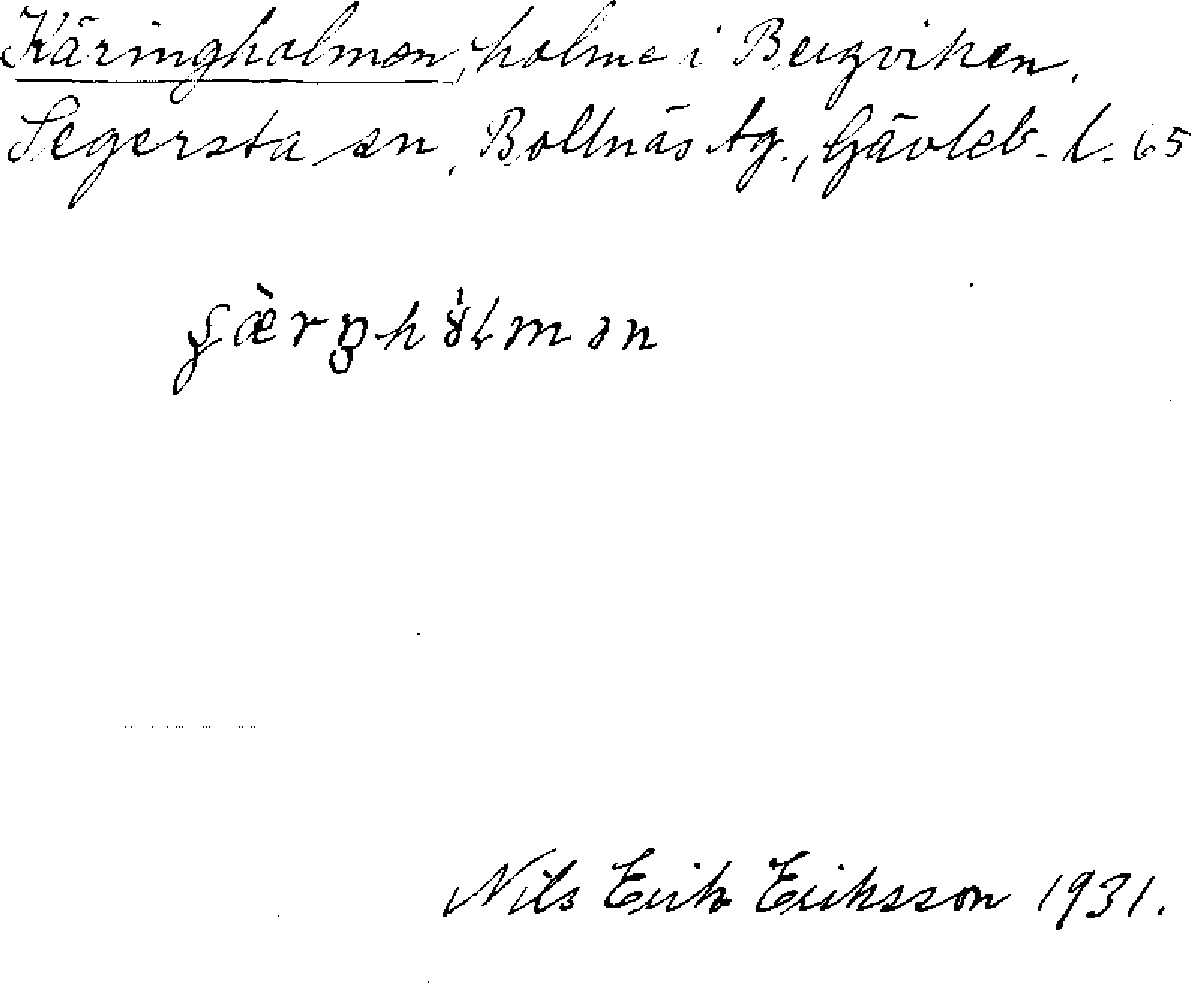 Käringholmen, holme i Bergviken.
Segersta sn, Bollnäs tg., Gävleb. l. 65
Nils Erik Eriksson 1931.